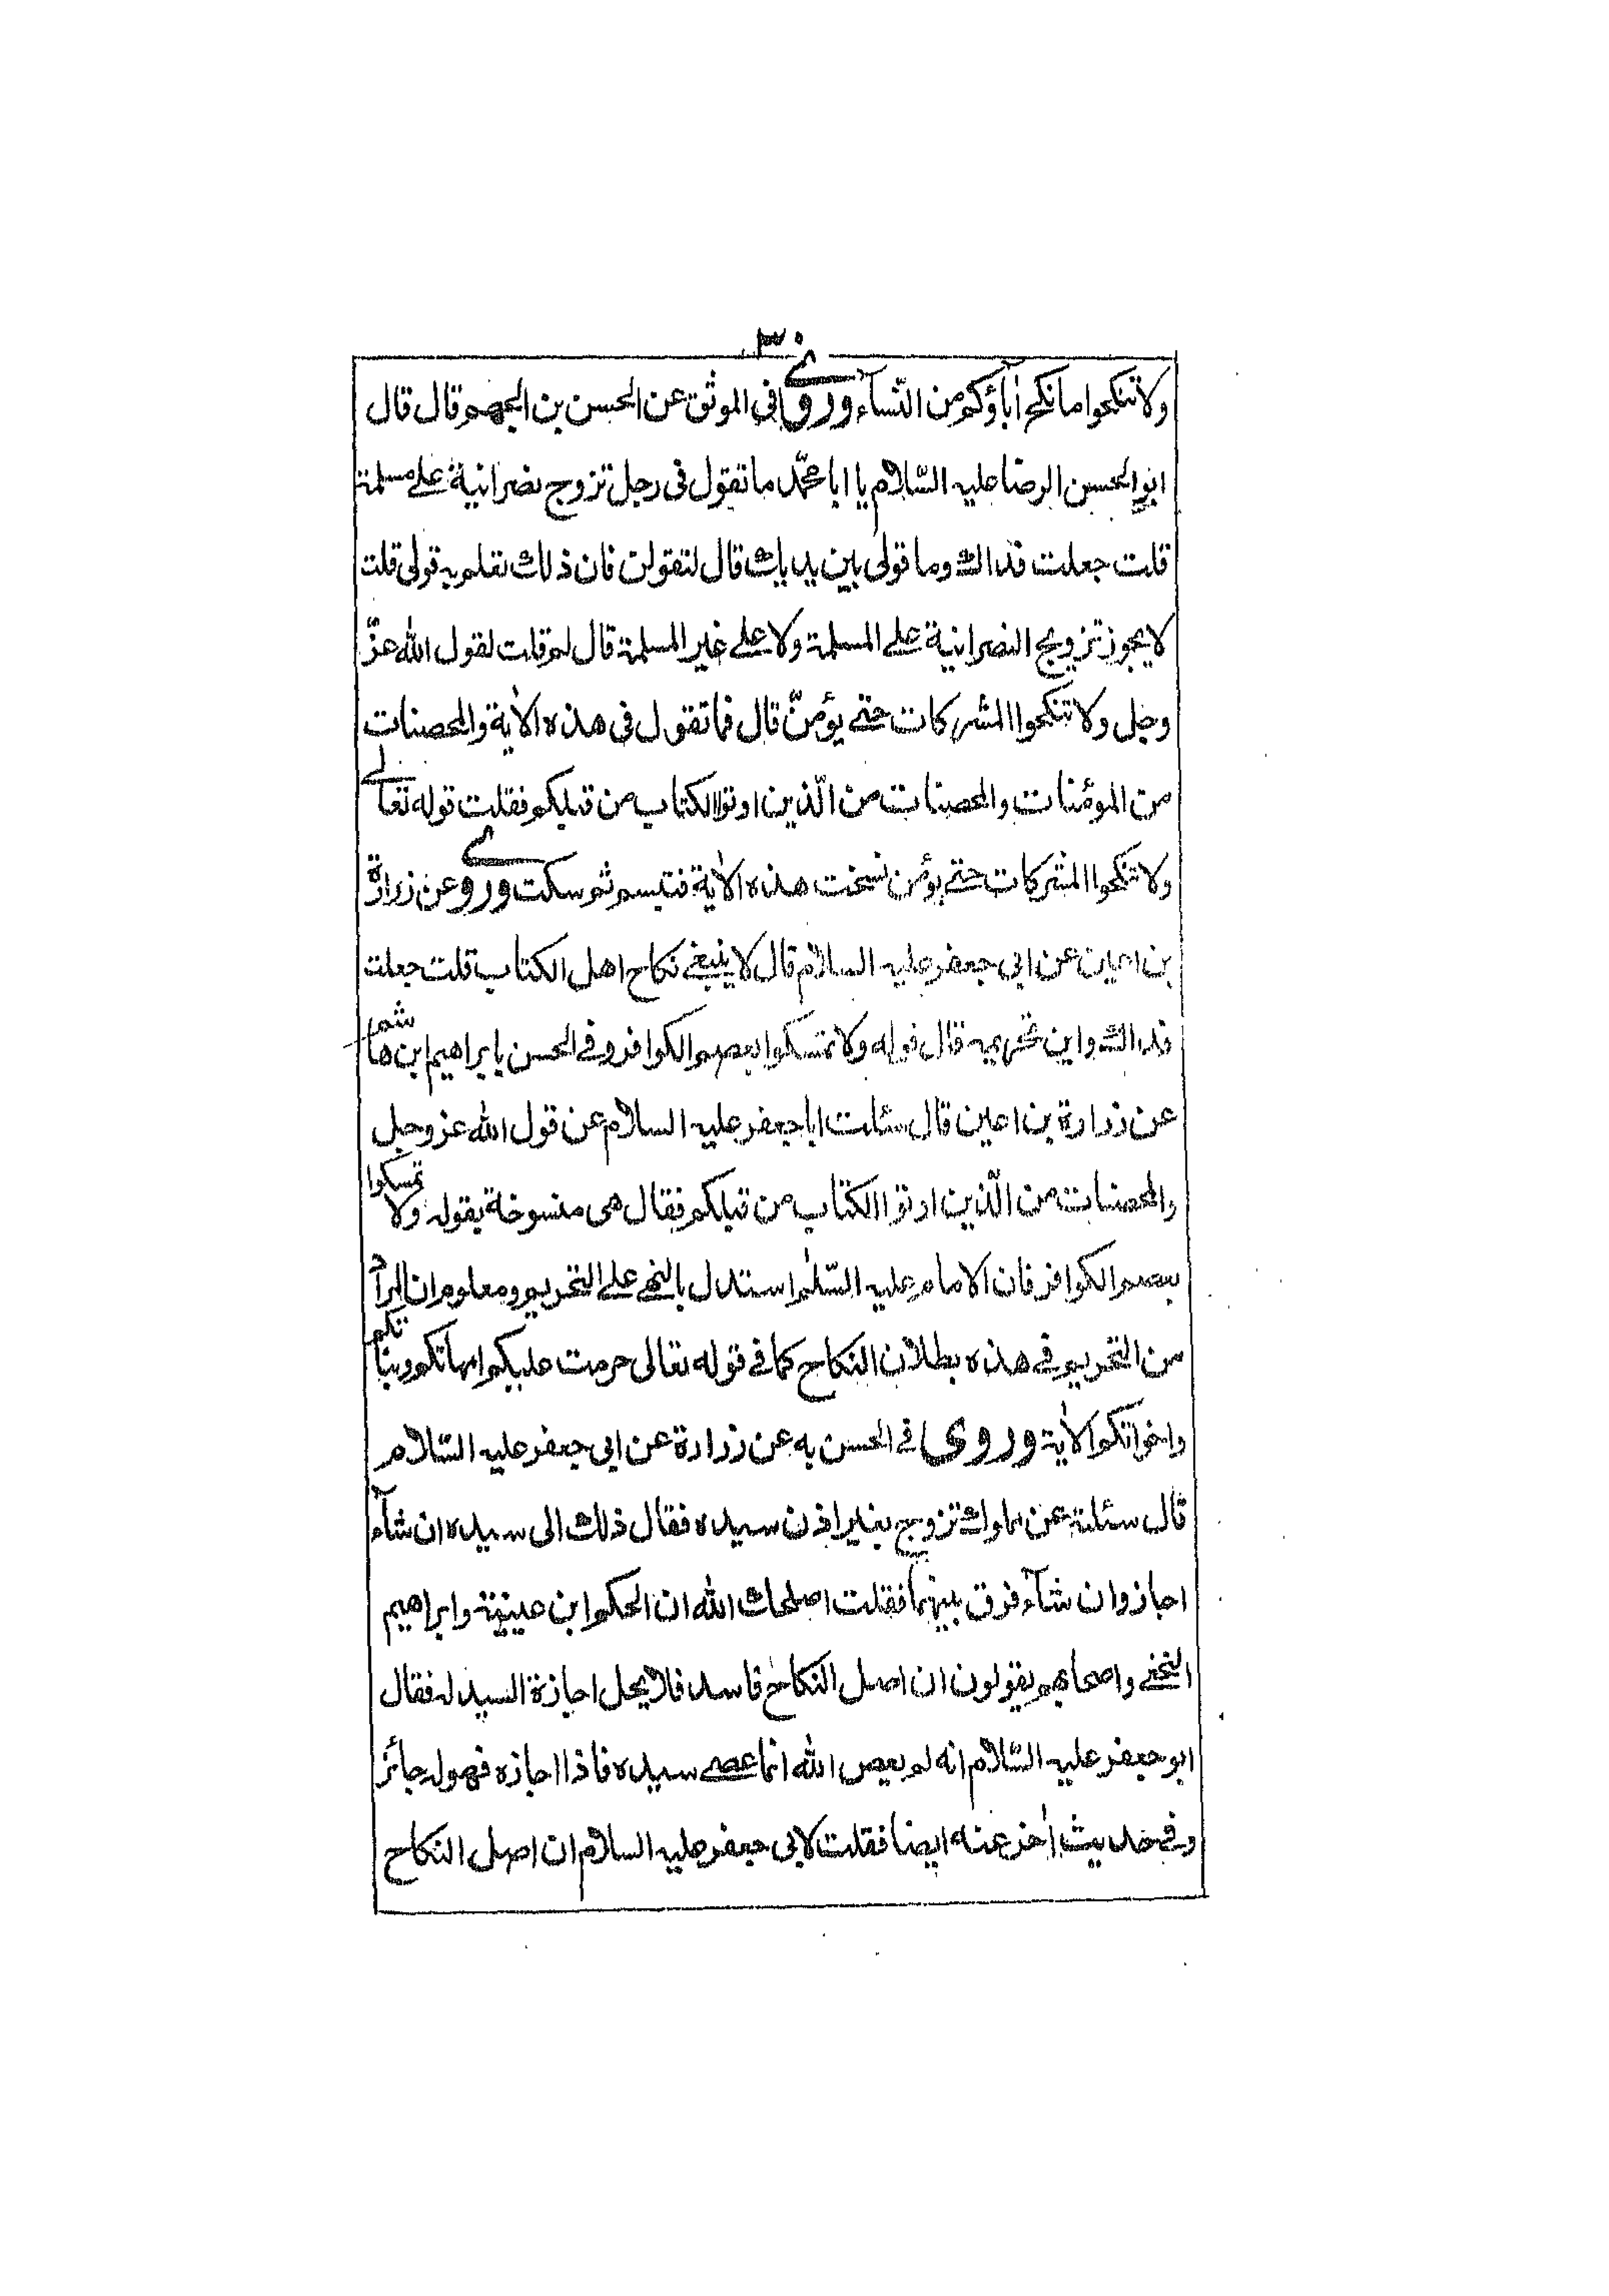 ٣٠
ولا تنكحوا ما نكح اٰباؤكم من النّسآء وروى فى الموثق عن الحسن بن الجهم قال قال
ابو الحسن الرضا عليه السّلام يا ابا محمّد ما تقول فى رجل تزوج نصرانية على مسلمة
قلت جعلت فداك وما قولى بين يديك قال لتقولن فان ذلك تعلم به قولى قلت
لا يجوز تزويج النصرانية على المسلمة ولا على غير المسلمة قال لم قلت لقول الله عزّ
وجل ولا تنكحوا المشركات حتى يؤمنّ قال فما تقول فى هذه الاٰية والمحصنات
من المؤمنات والمحصنات من الّذين اوتوا الكتاب من قبلكم فقلت قوله تعالى
ولا تنكحوا المشركات حتى يؤمن نسخت هذه الاٰية فتبسم ثم سكت وروى عن زرارة
بن اعين عن ابى جعفر عليه السلام قال لا ينبغى نكاح اهل الكتاب قلت جعلت
فداك واين تحريمه قال قوله ولا تمسكوا بعصم الكوافر وفى الحسن بابراهيم ابن هاشم
عن زرارة بن اعين قال سئلت ابا جعفر عليه السلام عن قول الله عز وجل
والمحصنات من الّذين اوتوا الكتاب من قبلكم فقال هى منسوخة بقوله ولا تمسكوا
بعصم الكوافر فان الامام عليه السّلٰم استدل بالنهى على التحريم ومعلوم ان المراد
من التحريم فى هذه بطلان النكاح كما فى قوله تعالى حرمت عليكم امهاتكم وبناتكم
واخواتكم الاٰية وروى فى الحسن به عن زرارة عن ابى جعفر عليه السّلام
قال سئلته عن مملوك تزوج بغير اذن سيده فقال ذلك الى سيده ان شآء
اجاز وان شآء فرق بينهما فقلت اصلحك الله ان الحكم ابن عيينة وابراهيم
النخعى واصحابهم يقولون ان اصل النكاح فاسد فلا يحل اجازة السيد له فقال
ابو جعفر عليه السّلام انه لم يعص الله انما عصى سيده فاذا اجازه فهو له جائز
وفى حديث اٰخر عنه ايضا فقلت لابى جعفر عليه السلام ان اصل النكاح